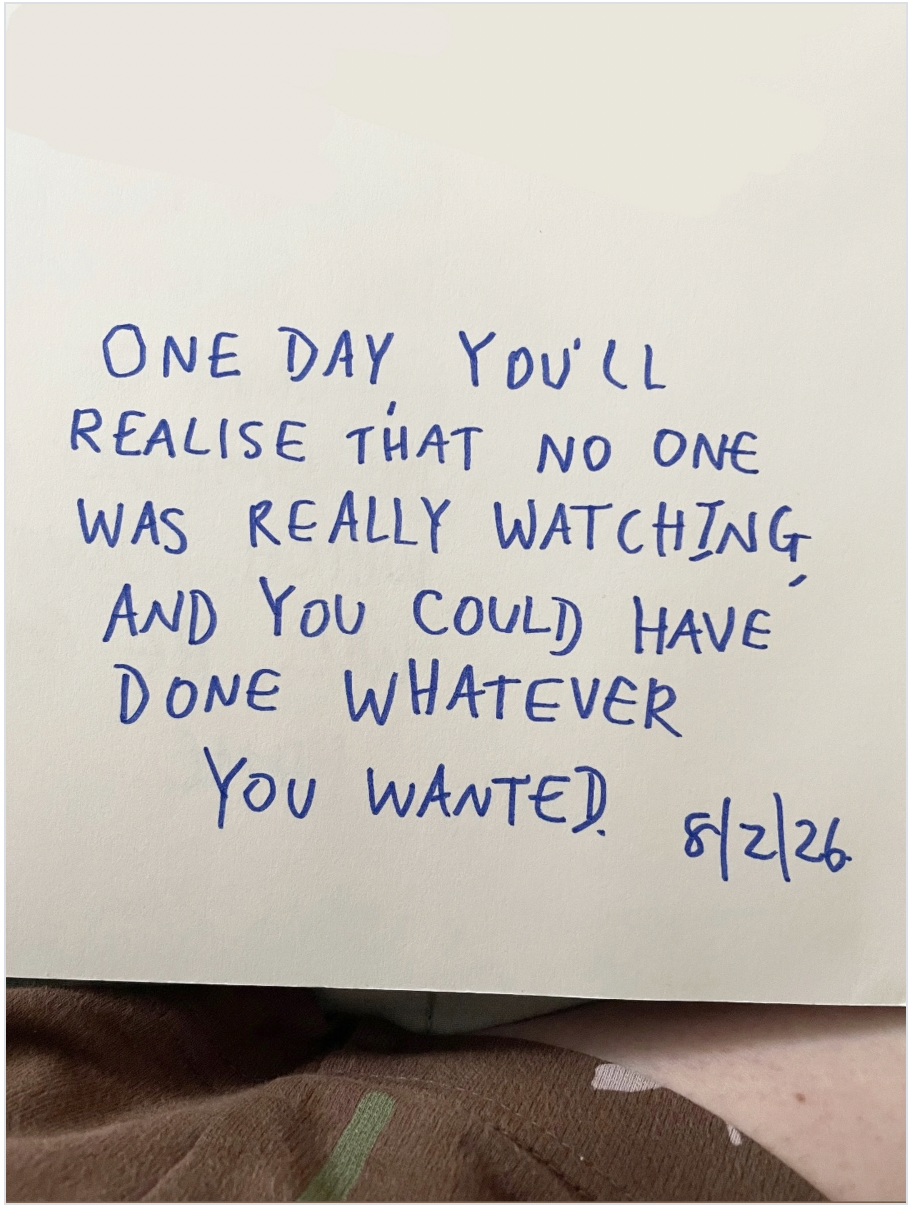 ONE DAY, YOU'LL
REALISE THAT NO ONE
WAS REALLY WATCHING,
AND YOU COULD HAVE
DONE WHATEVER
YOU WANTED.
8/2/26